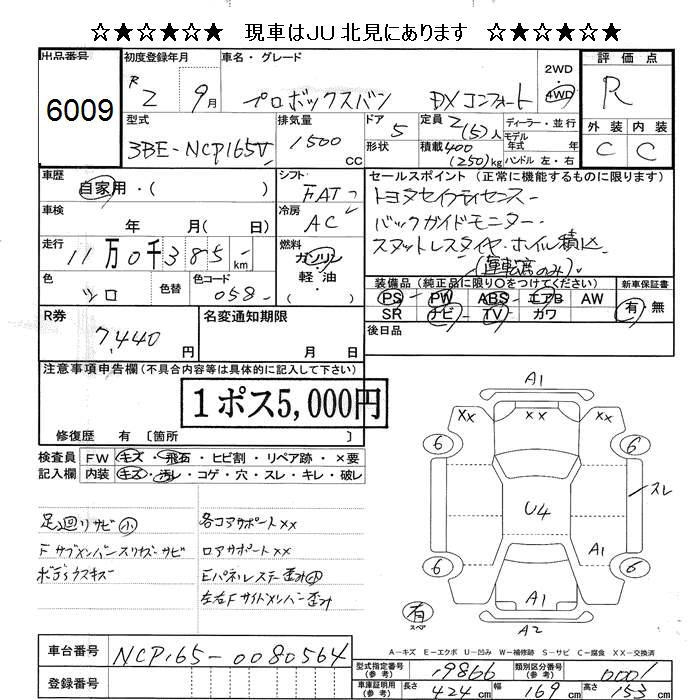 ☆★☆★☆★ 現車はJU北見にあります ☆★☆★☆★
出品番号 6009
初度登録年月 R2 9月
車名・グレード プロボックスバン DXコンフォート
2WD 4WD
評価点 R
外装 C 内装 C
型式 3BE-NCP165V
排気量 1500 CC
ドア 5
形状
定員 2(5)人
積載 400(250)kg
ディーラー・並行
モデル年式 年式
ハンドル 左・右
車歴 自家用・( )
シフト FAT
セールスポイント(正常に機能するものに限ります)
トヨタセイフティセンス
バックガイドモニター
スタットレスタイヤ・ホイル積込
(運転席のみ)
車検 年 月( 日)
冷房 AC
走行 11万0千385 km
燃料 ガソリン 軽・油
色 シロ 色替 色コード 058
装備品(純正品に限り○をつけてください)
PS - PW ABS - エアB AW
SR ナビ - TV カワ
新車保証書 有 無
後日品
R券 7,440 円
名変通知期限 月 日
注意事項申告欄(不具合内容等は具体的に記入して下さい)
1ポス5,000円
修復歴 有 〔箇所 〕
検査員記入欄 FW キズ・飛石・ヒビ割・リペア跡・×要
内装 キズ・汚レ・コゲ・穴・スレ・キレ・破レ
足廻リサビ小
Fサブメンバースリキズサビ
ボディウスキズ
各コアサポートXX
ロアサポートXX
Eパネルステー歪み小
左右Fサイドメンバー歪み
A1
XX XX XX
6 6
スレ
U4
A1
6 6
A1
有 スペア
A2
A-キズ E-エクボ U-凹み W-補修跡 S-サビ C-腐食 XX-交換済
車台番号 NCP165-0080564
登録番号
型式指定番号(参考) 19866 類別区分番号(参考) 0001
車庫証明用(参考) 長さ 424cm 幅 169cm 高さ 153cm